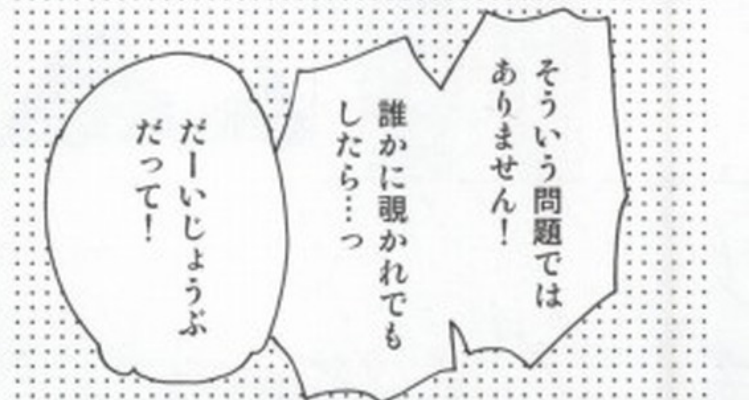 そういう問題では
ありません！
誰かに覗かれでも
したら…っ
だーいじょうぶ
だって！